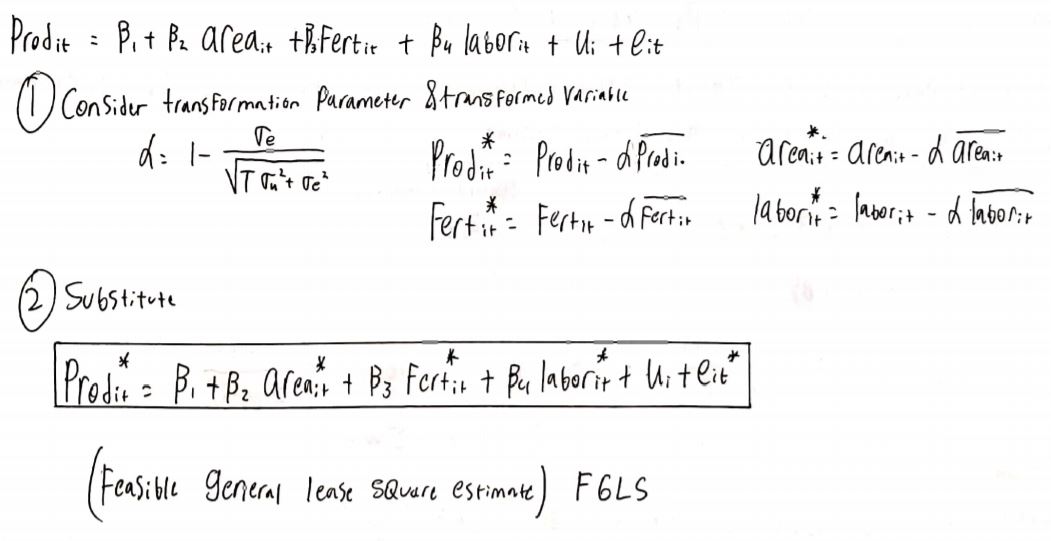 Prodit = β₁ + β₂ areait + β₃Fertit + β₄ laborit + Ui + eit
① Consider transformation Parameter & transformed Variable
α = 1 - σe / √(T σu² + σe²)
Prodit* = Prodit - α P̅r̅o̅d̅i̅.
areait* = areait - α a̅r̅e̅a̅i̅t̅
Fertit* = Fertit - α F̅e̅r̅t̅i̅t̅
laborit* = laborit - α l̅a̅b̅o̅r̅i̅t̅
② Substitute
Prodit* = β₁ + β₂ areait* + β₃ Fertit* + β₄ laborit* + Ui + eit*
(Feasible general lease square estimate) FGLS